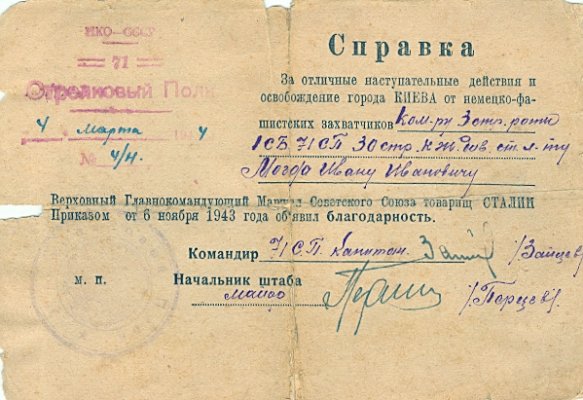 НКО—СССР
71
Стрелковый Полк
4 марта 1944
№ 4/н.
Справка
За отличные наступательные действия и
освобождение города КИЕВА от немецко-фа-
шистских захватчиков Ком-ру 3 стр. роты
1СБ 71СП 30 стр. ст. л-ту
Ивану Ивановичу
Верховный Главнокомандующий Маршал Советского Союза товарищ СТАЛИН
Приказом от 6 ноября 1943 года об'явил благодарность.
Командир 71 С.П. Капитан /Зайцев/
м. п. Начальник штаба
майор